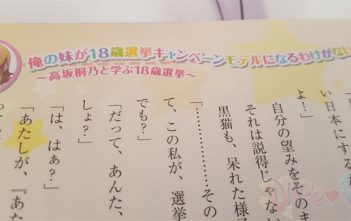 俺の妹が18歳選挙キャンペーンモデルになるわけがない
～高坂桐乃と学ぶ18歳選挙～
い日本にする
よ！」
自分の望みをそのま
それは説得じゃない
「………その
黒猫も、呆れた様子
て、この私が、選挙
でも？」
「だって、あんた、
しょ？」
「は、はぁ？」
「あたしが、『あた